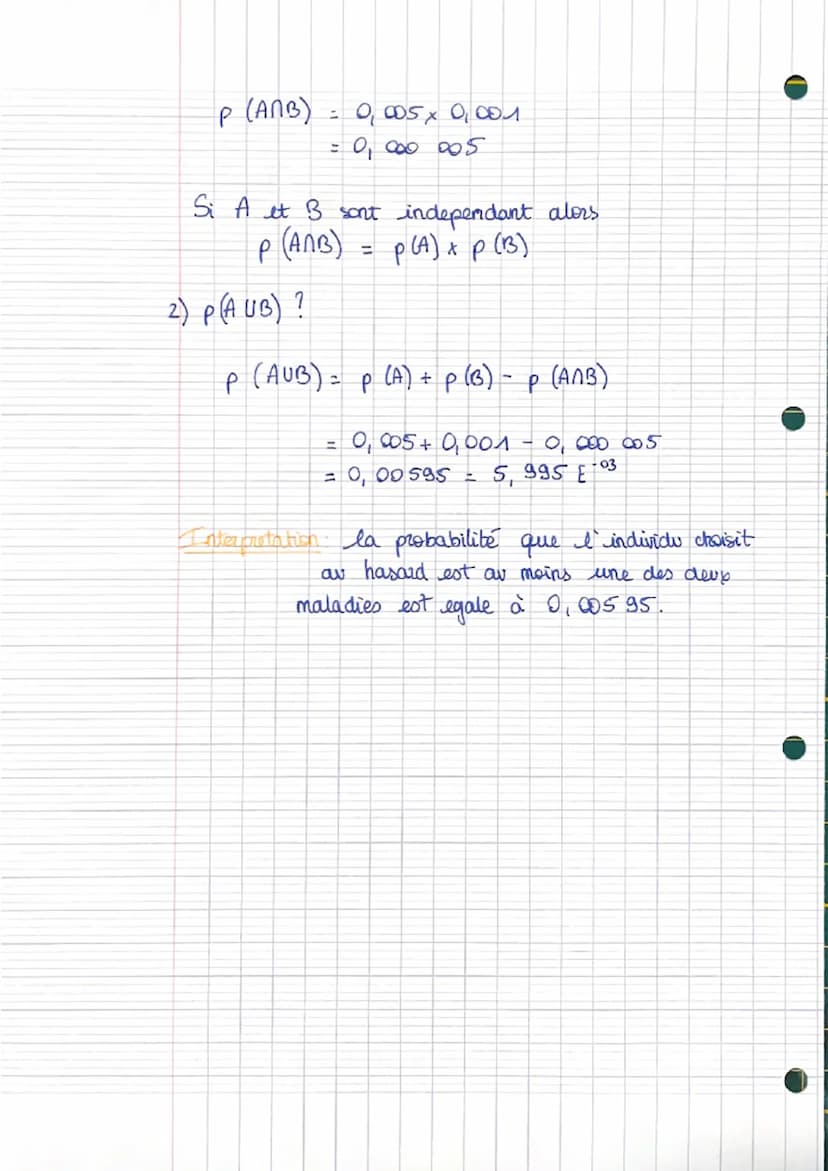 p (A∩B) = 0,005 x 0,001
= 0, 000 005
Si A et B sont independant alors
p (A∩B) = p(A) x p (B)
2) p(A ∪B) ?
p (A∪B) = p (A) + p (B) - p (A∩B)
= 0,005 + 0,001 - 0, 000 005
= 0, 00595 = 5, 995 E⁻⁰³
Interpretation: la probabilité que l'individu choisit
au hasard est au moins une des deux
maladies est egale à 0,00595.